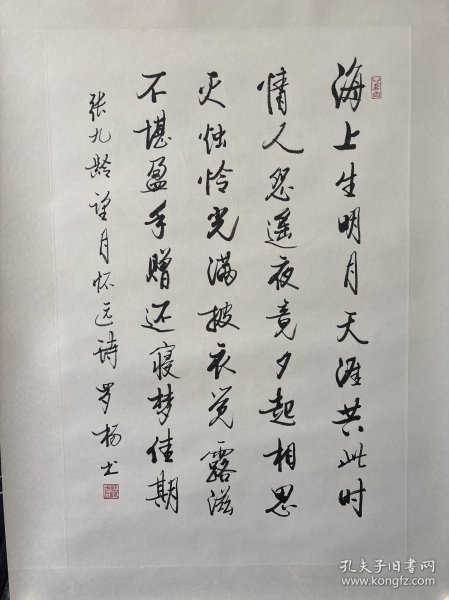 海上生明月天涯共此时
情人怨遥夜竟夕起相思
灭烛怜光满披衣觉露滋
不堪盈手赠还寝梦佳期
张九龄望月怀远诗 罗杨书
孔夫子旧书网
www.kongfz.com